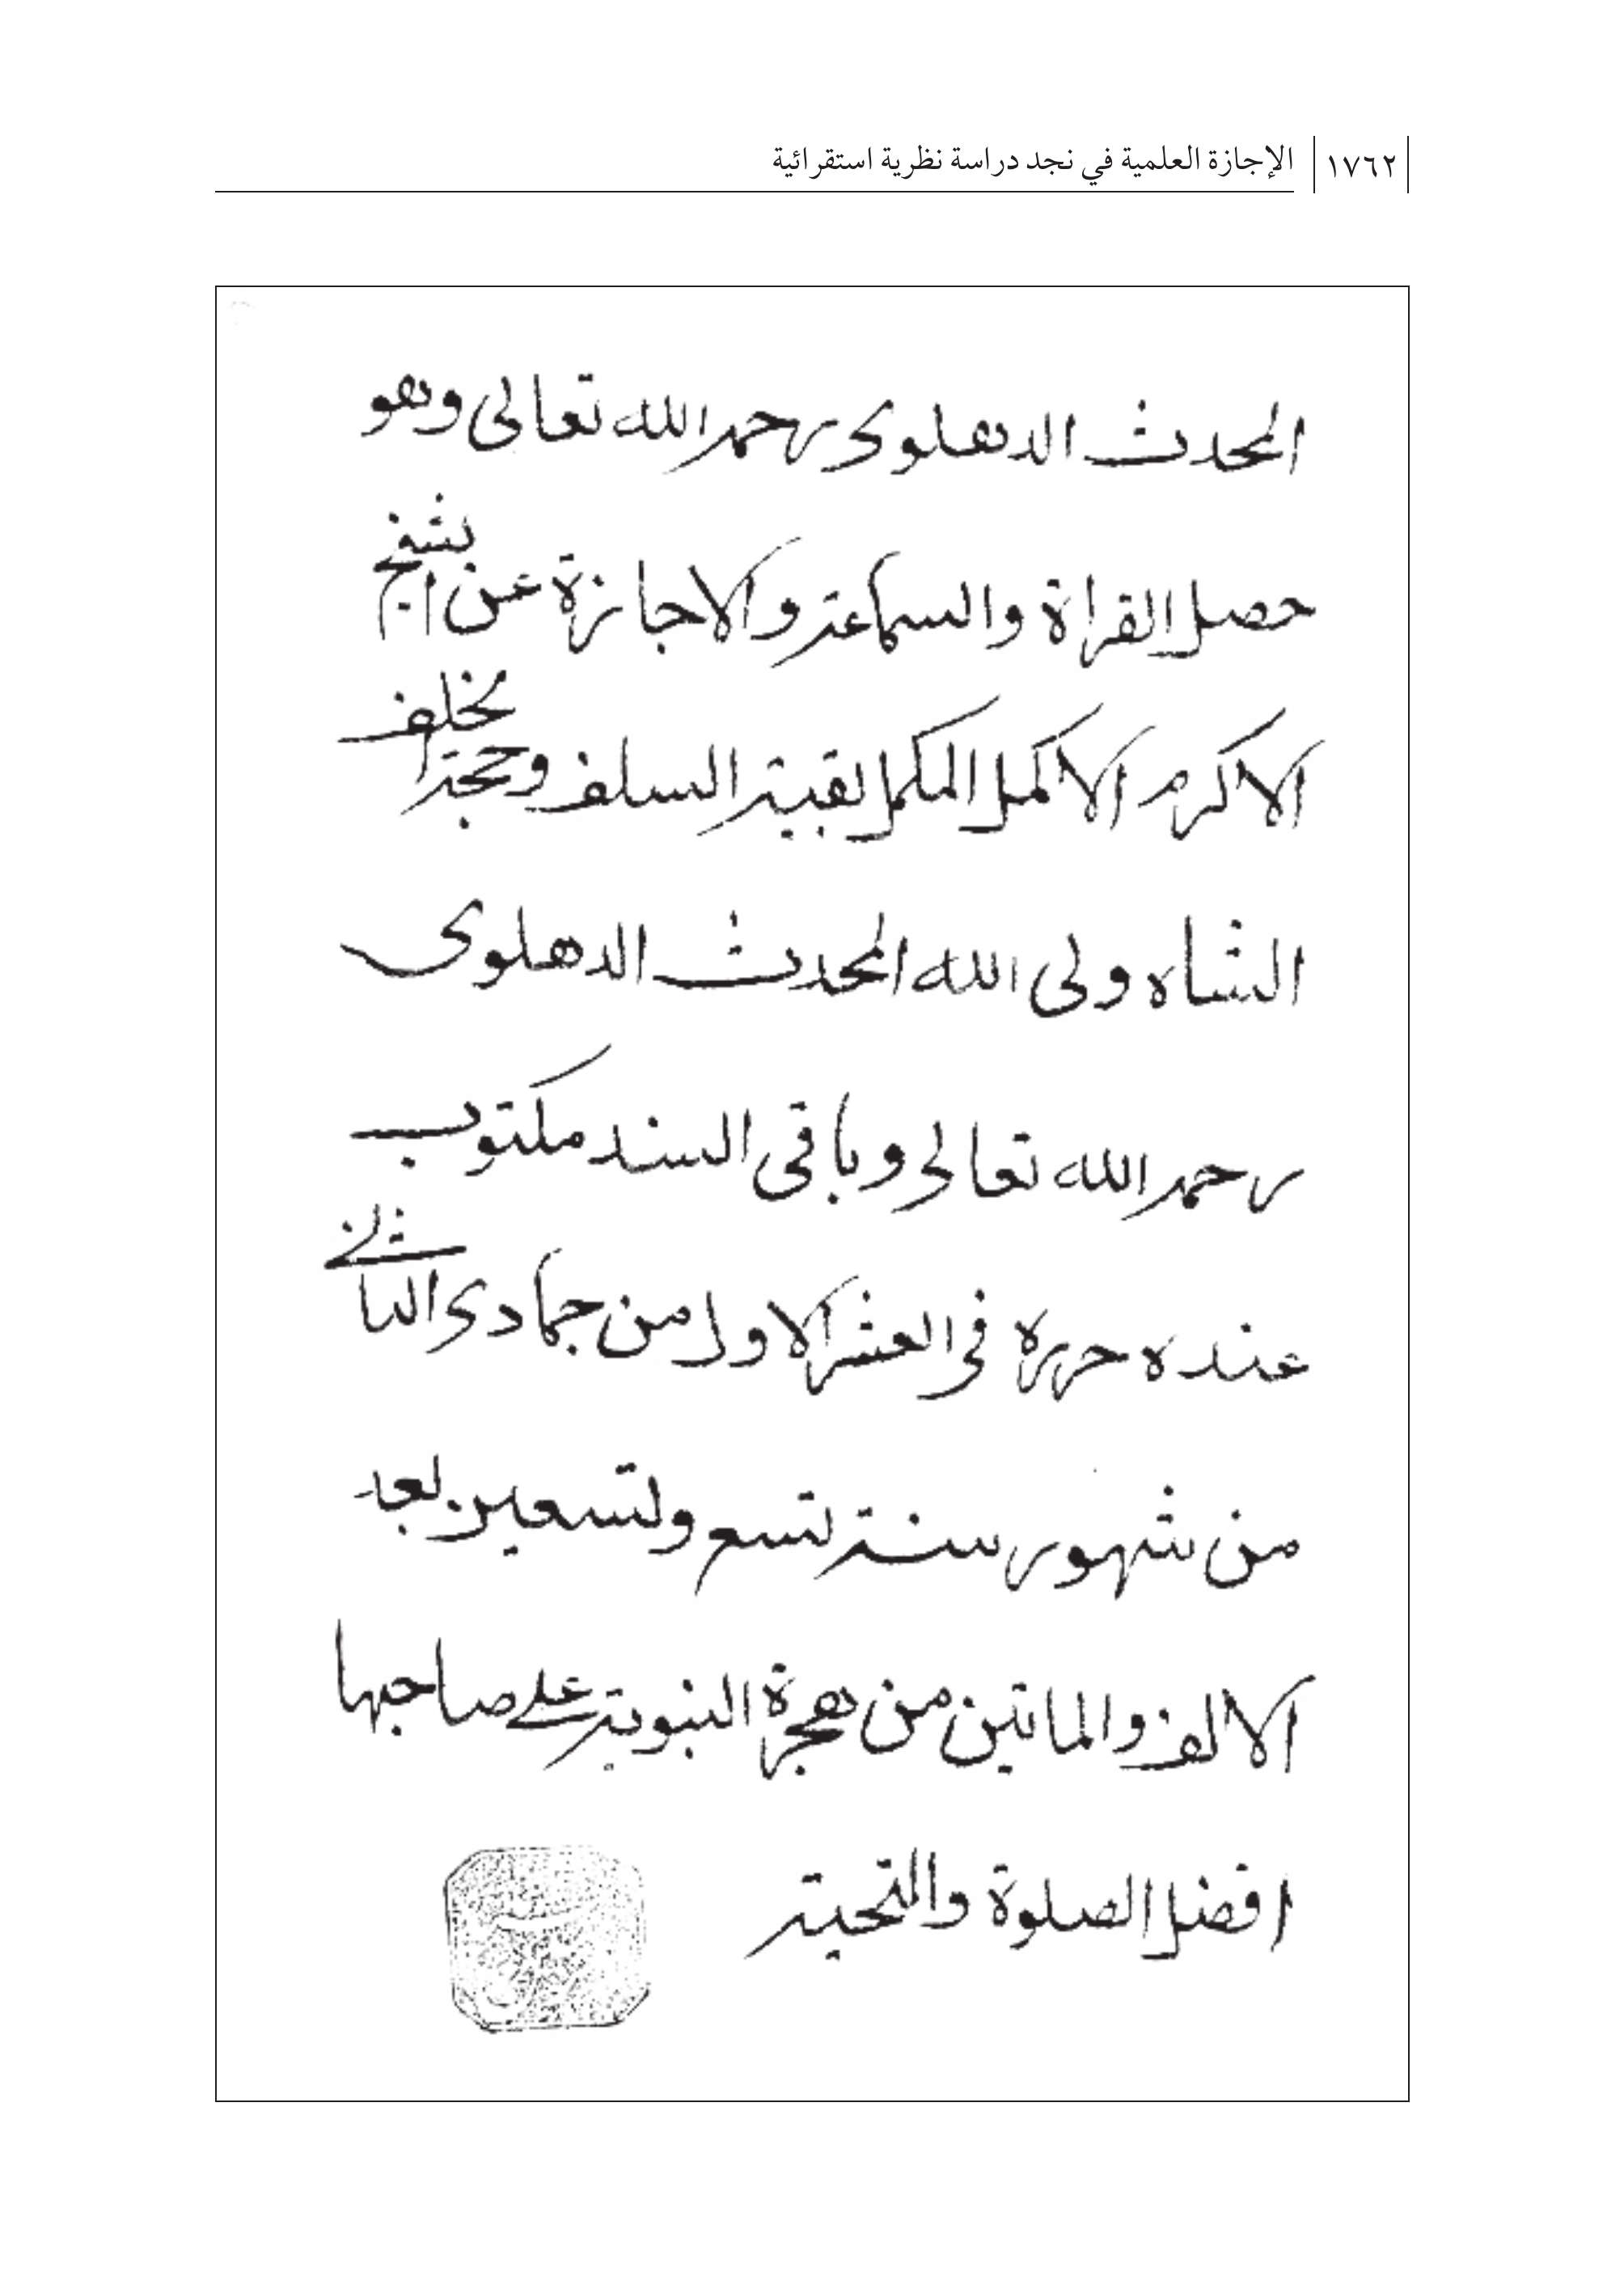 ١٧٦٢ الإجازة العلمية في نجد دراسة نظرية استقرائية
المحدث الدهلوى رحمه الله تعالى وهو
حصل القراة والسماعة والاجازة عن الشيخ
الاكرم الاكمل المكمل بقية السلف وحجة الخلف
الشاه ولى الله المحدث الدهلوى
رحمه الله تعالى وباقى السند مكتوب
عنده حرره فى العشر الاول من جمادى الثانى
من شهور سنة تسع وتسعين بعد
الالف والماتين من هجرة النبوية على صاحبها
افضل الصلوة والتحية